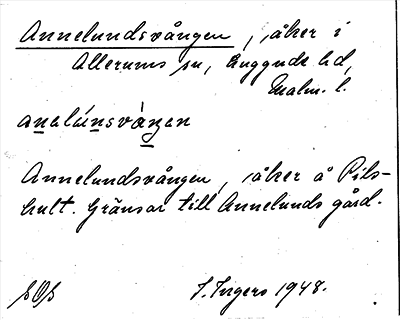 Annelundsvången, åker i
Allerums sn, Luggude hd,
Malm. l.
analúnsvàŋen
Annelundsvången, åker å Pils-
hult. Gränsar till Annelunds gård.
1948.